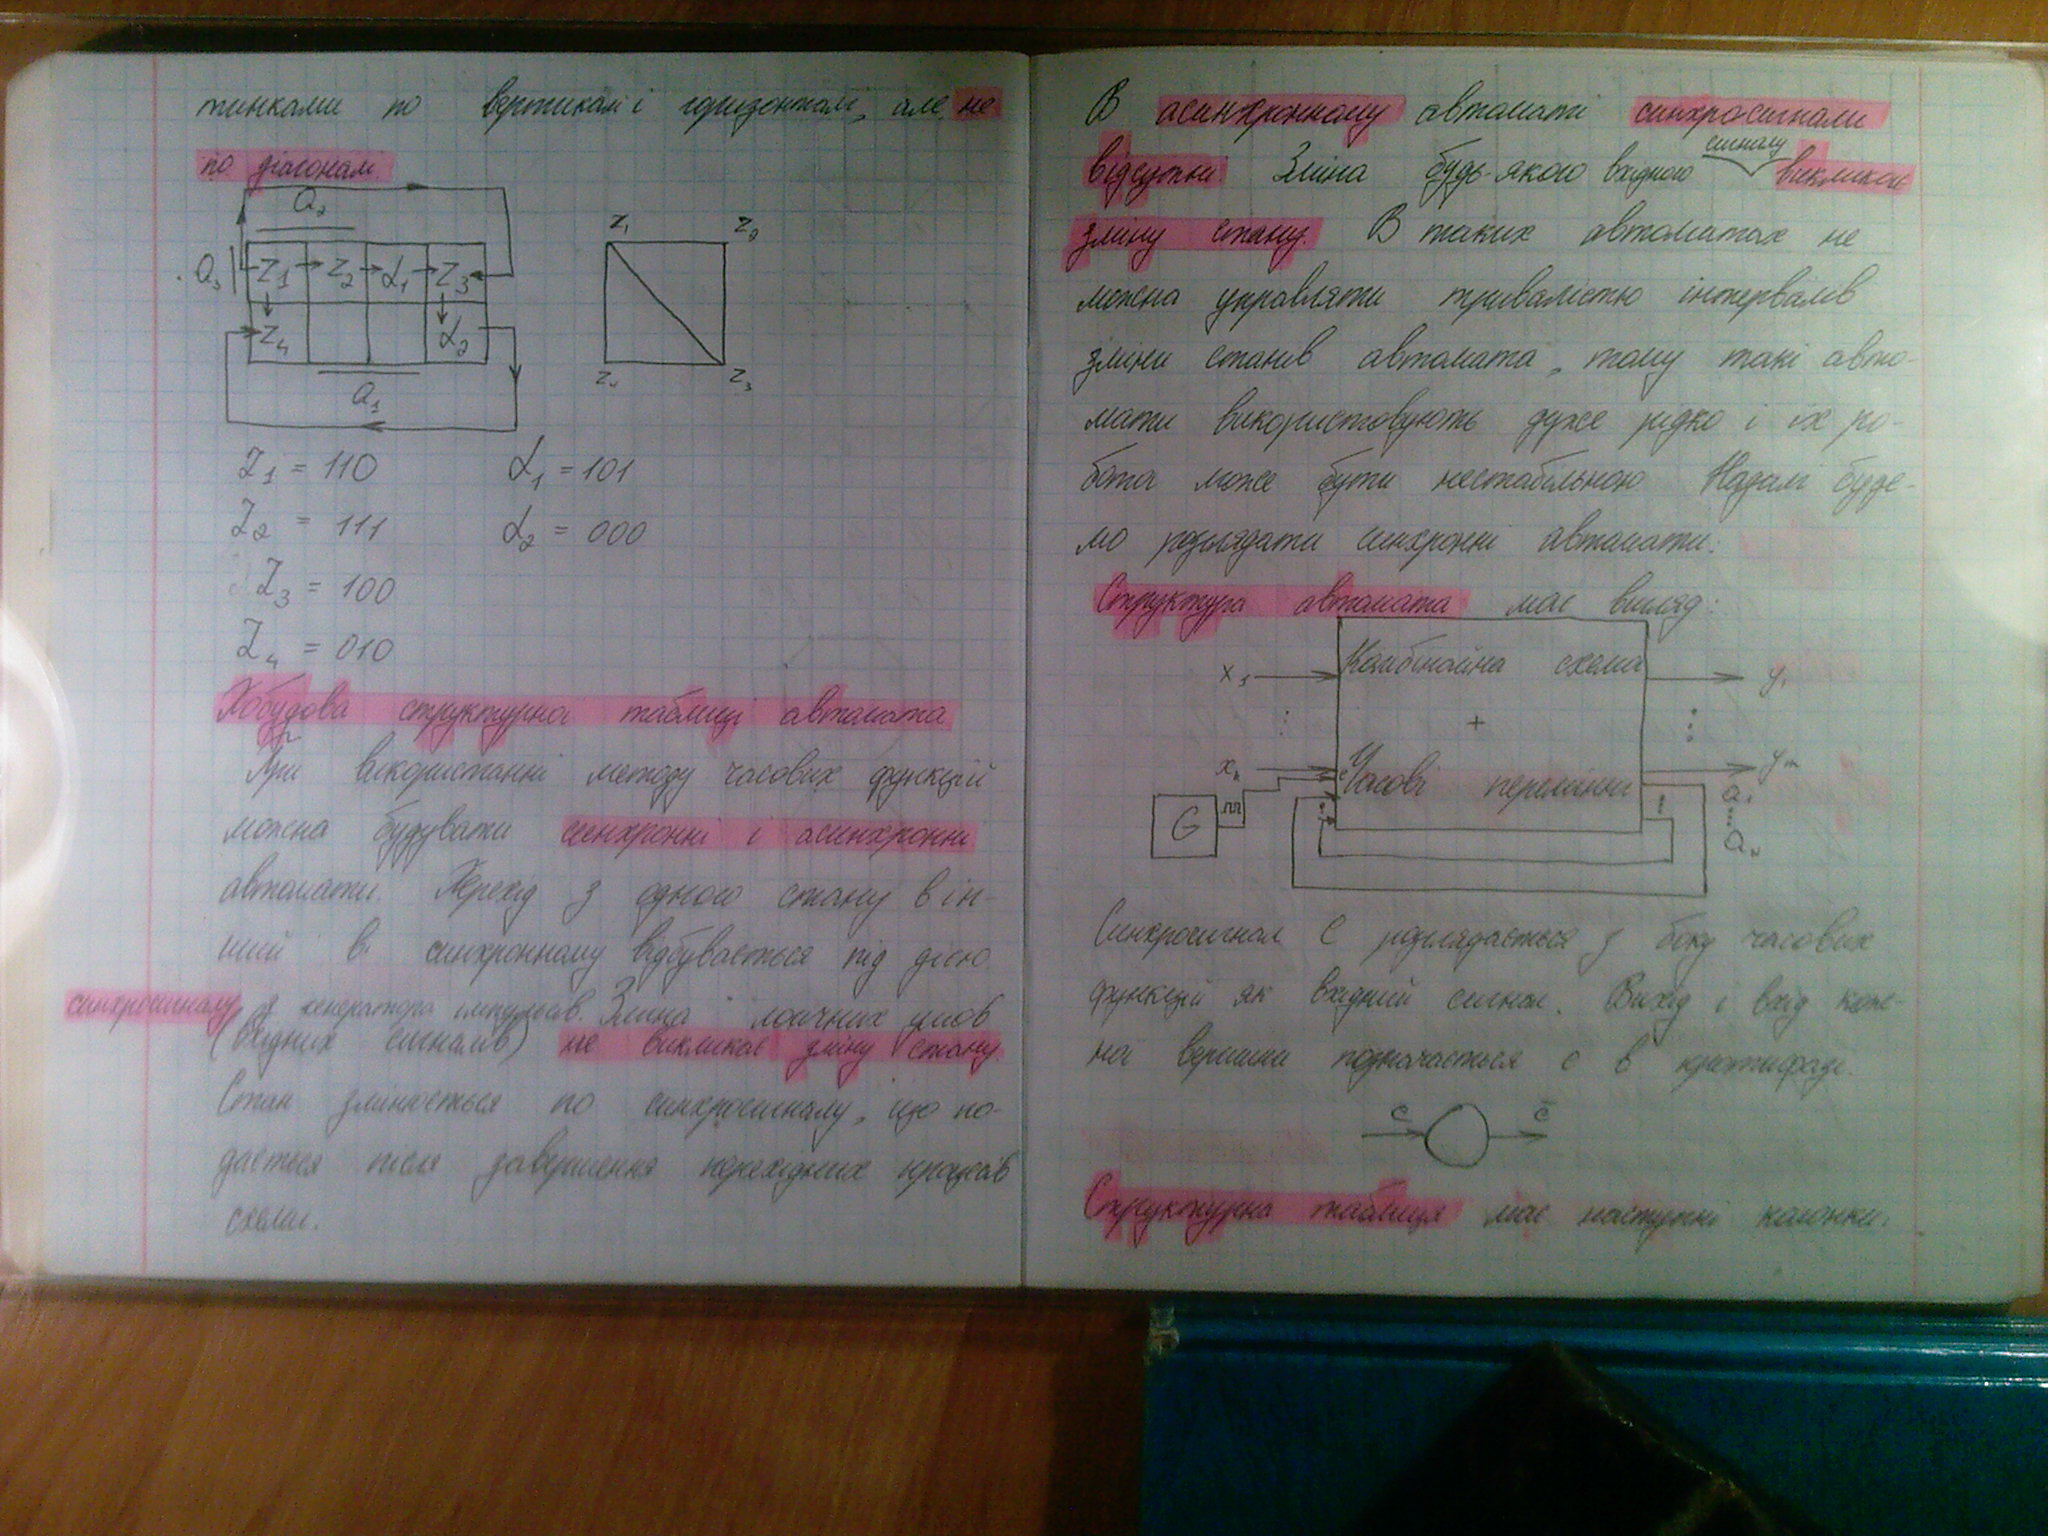 тинками по вертикалі і горизонталі, але не
по діагоналі.
a₂
a₃ z₁ z₂ α₁ z₃
z₄ α₂
a₁
z₁ z₂
z₄ z₃
Z₁ = 110 α₁ = 101
Z₂ = 111 α₂ = 000
Z₃ = 100
Z₄ = 010
Побудова структурної таблиці автомата
При використанні методу часових функцій
можна будувати синхронні і асинхронні
автомати. Перехід з одного стану в ін-
ший в синхронному відбувається під дією
синхросигналу з генератора імпульсів. Зміна логічних умов
(вхідних сигналів) не викликає зміну стану
Стан змінюється по синхросигналу, що по-
дається після завершення перехідних процесів
схеми.
В асинхронному автоматі синхросигнали
відсутні. Зміна будь-якого вхідного сигналу викликає
зміну стану. В таких автоматах не
можна управляти тривалістю інтервалів
зміни станів автомата, тому такі авто-
мати використовують дуже рідко і їх ро-
бота може бути нестабільною Надалі буде-
мо розглядати синхронні автомати.
Структура автомата має вигляд:
x₁ Комбінаційна схема y₁
+
xₖ Часові перемінні yₘ
G c a₁
aₙ
Синхросигнал C розглядається з боку часових
функцій як вхідний сигнал. Вихід і вхід кож-
ної вершини позначається c в крагифаді.
c c̄
Структурна таблиця має наступні колонки: